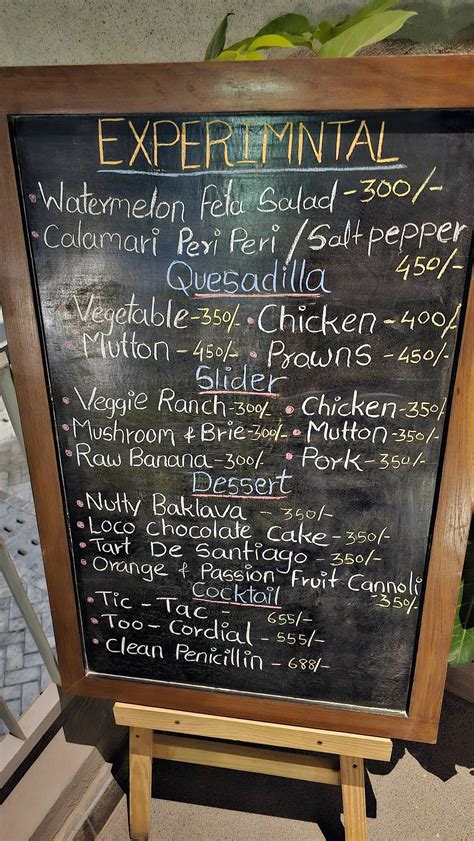 EXPERIMNTAL
Watermelon Feta Salad - 300/-
Calamari Peri Peri / Salt pepper
450/-
Quesadilla
Vegetable - 350/- Chicken - 400/-
Mutton - 450/- Prawns - 450/-
Slider
Veggie Ranch - 300/- Chicken - 350/-
Mushroom & Brie - 300/- Mutton - 350/-
Raw Banana - 300/- Pork - 350/-
Dessert
Nutty Baklava - 350/-
Loco Chocolate Cake - 350/-
Tart De Santiago - 350/-
Orange & Passion Fruit Cannoli
- 350/-
Cocktail
Tic - Tac - 655/-
Too - Cordial - 555/-
Clean Penicillin - 688/-